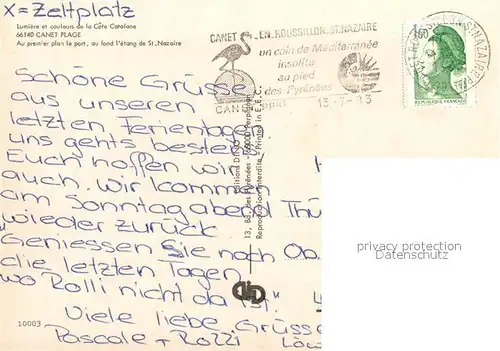 x = Zeltplatz
Lumière et couleurs de la Côte Catalane
66140 CANET PLAGE
Au premier plan le port, au fond l'étang de St. Nazaire
CANET EN ROUSSILLON ST. NAZAIRE
un coin de Méditerranée
insolite
au pied
des Pyrénées
13-7-
1,60
REPUBLIQUE FRANÇAISE
Schöne Grüsse
aus unseren
letzten Ferientagen
uns gehts bestens
Euch hoffen wir
auch. Wir kommen
am Sonntagabend
wieder zurück
Geniessen Sie noch
die letzten Tagen
wo Rolli nicht da ist.
Viele liebe Grüsse
Pascale + Rolli
Editions DINO
13, Bd. des Pyrénées - 66000 Perpignan
Reproduction Interdite - Printed in E.E.C.
10003
privacy protection
Datenschutz